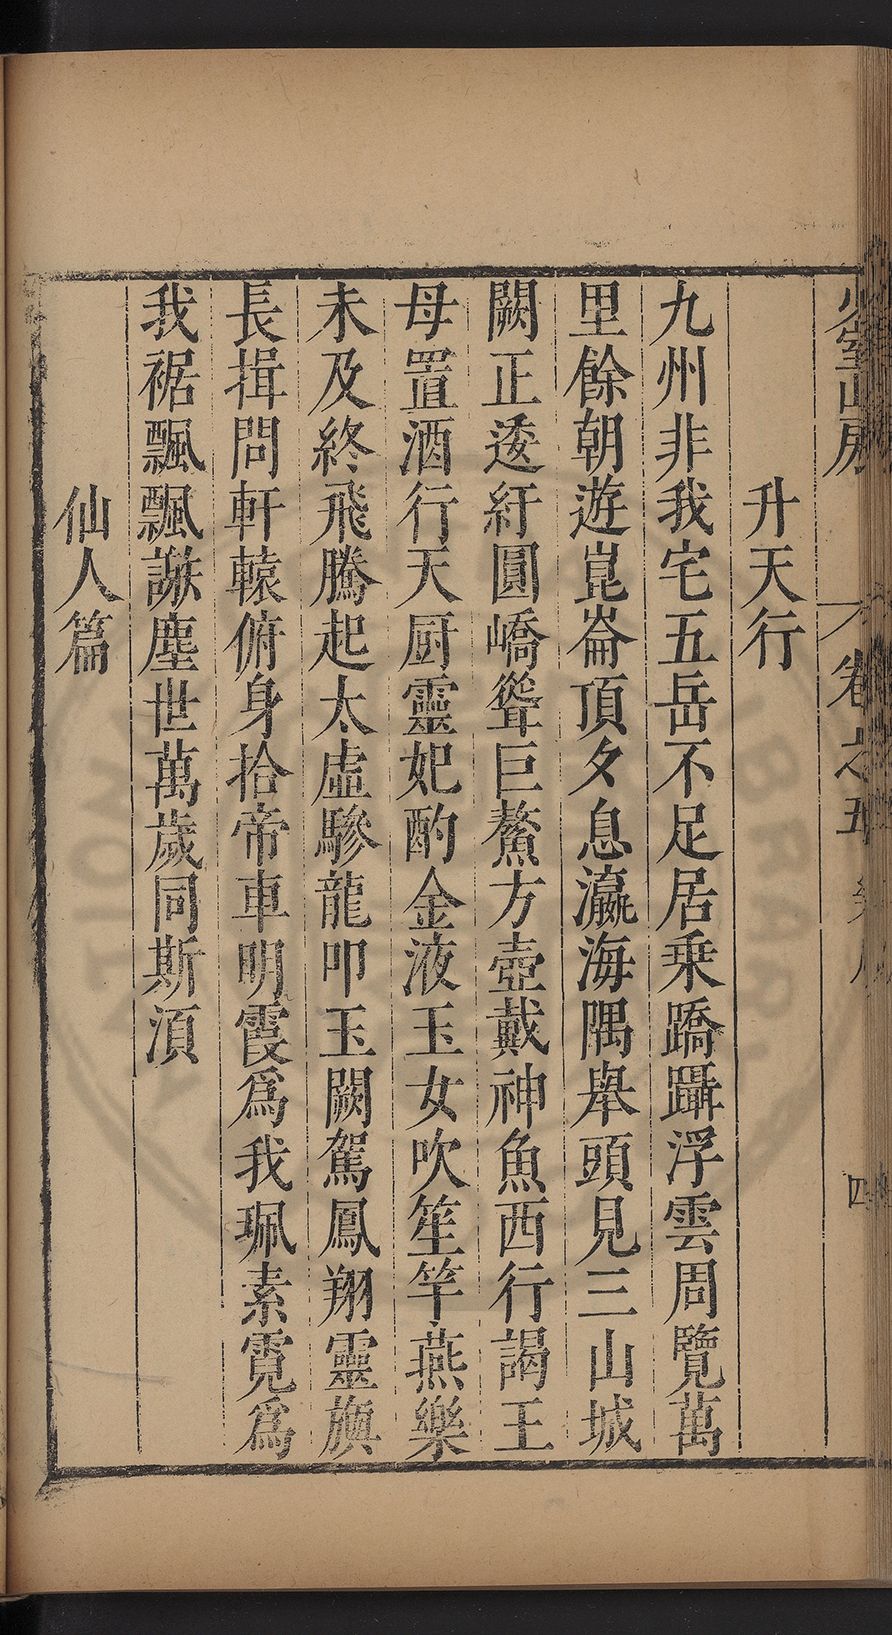 少室山房
卷之五
四
升天行
九州非我宅五岳不足居乗蹻躡浮雲周覽萬
里餘朝遊崑崙頂夕息瀛海隅舉頭見三山城
闕正逶紆圓嶠聳巨鰲方壺戴神魚西行謁王
母置酒行天厨靈妃酌金液玉女吹笙竽燕樂
未及終飛騰起太虛驂龍叩玉闕駕鳳翔靈旟
長揖問軒轅俯身拾帝車明霞爲我珮素霓爲
我裾飄飄謝塵世萬歲同斯須
仙人篇